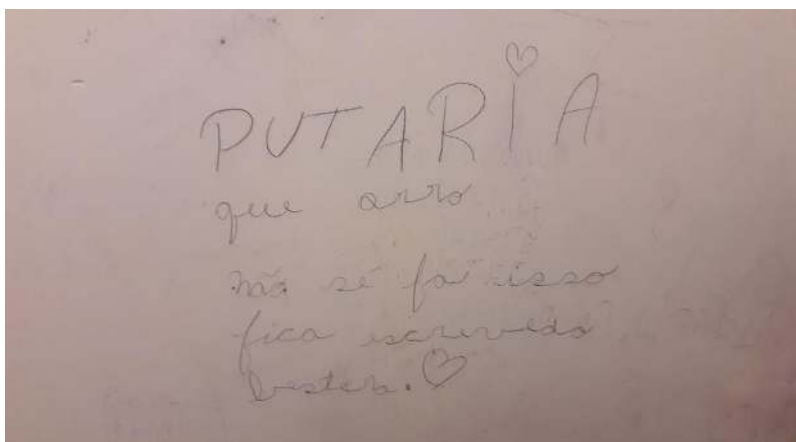 PUTARIA
que orro
não se fai isso
fica escrevedo
bestera.